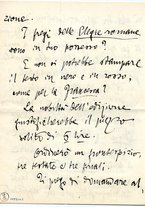 zione.
I pregi delle Elegie romane
sono in tuo possesso?
E non si potrebbe stampare
il testo in nero e in rosso,
come per la Francesca?
La nobiltà dell'edizione
giustificherebbe il prezzo
solito di 5 lire.
Ordinerò un frontespizio,
tre testate e tre finali.
Ti prego di domandare al,